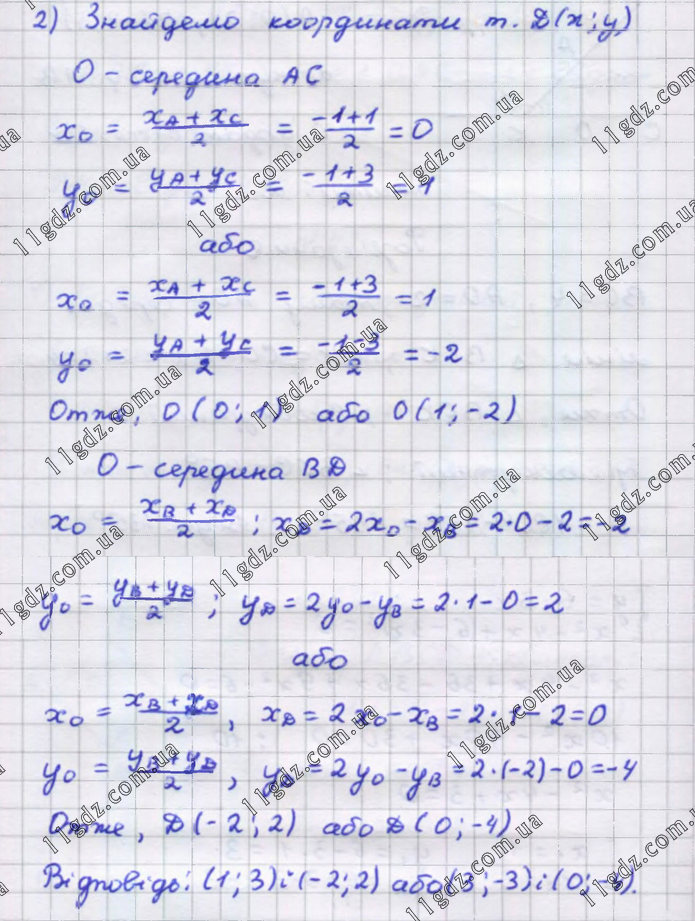 2) Знайдемо координати т. D(x; y)
O – середина AC
x₀ = (x_A + x_C)/2 = (-1+1)/2 = 0
y₀ = (y_A + y_C)/2 = (-1+3)/2 = 1
або
x₀ = (x_A + x_C)/2 = (-1+3)/2 = 1
y₀ = (y_A + y_C)/2 = (-1-3)/2 = -2
Отже, O(0; 1) або O(1; -2)
O – середина BD
x₀ = (x_B + x_D)/2 ; x_D = 2x₀ - x_B = 2·0 - 2 = -2
y₀ = (y_B + y_D)/2 ; y_D = 2y₀ - y_B = 2·1 - 0 = 2
або
x₀ = (x_B + x_D)/2 , x_D = 2x₀ - x_B = 2·1 - 2 = 0
y₀ = (y_B + y_D)/2 , y_D = 2y₀ - y_B = 2·(-2) - 0 = -4
Отже, D(-2; 2) або D(0; -4)
Відповідь: (1; 3) і (-2; 2) або (3; -3) і (0; -4).
11gdz.com.ua